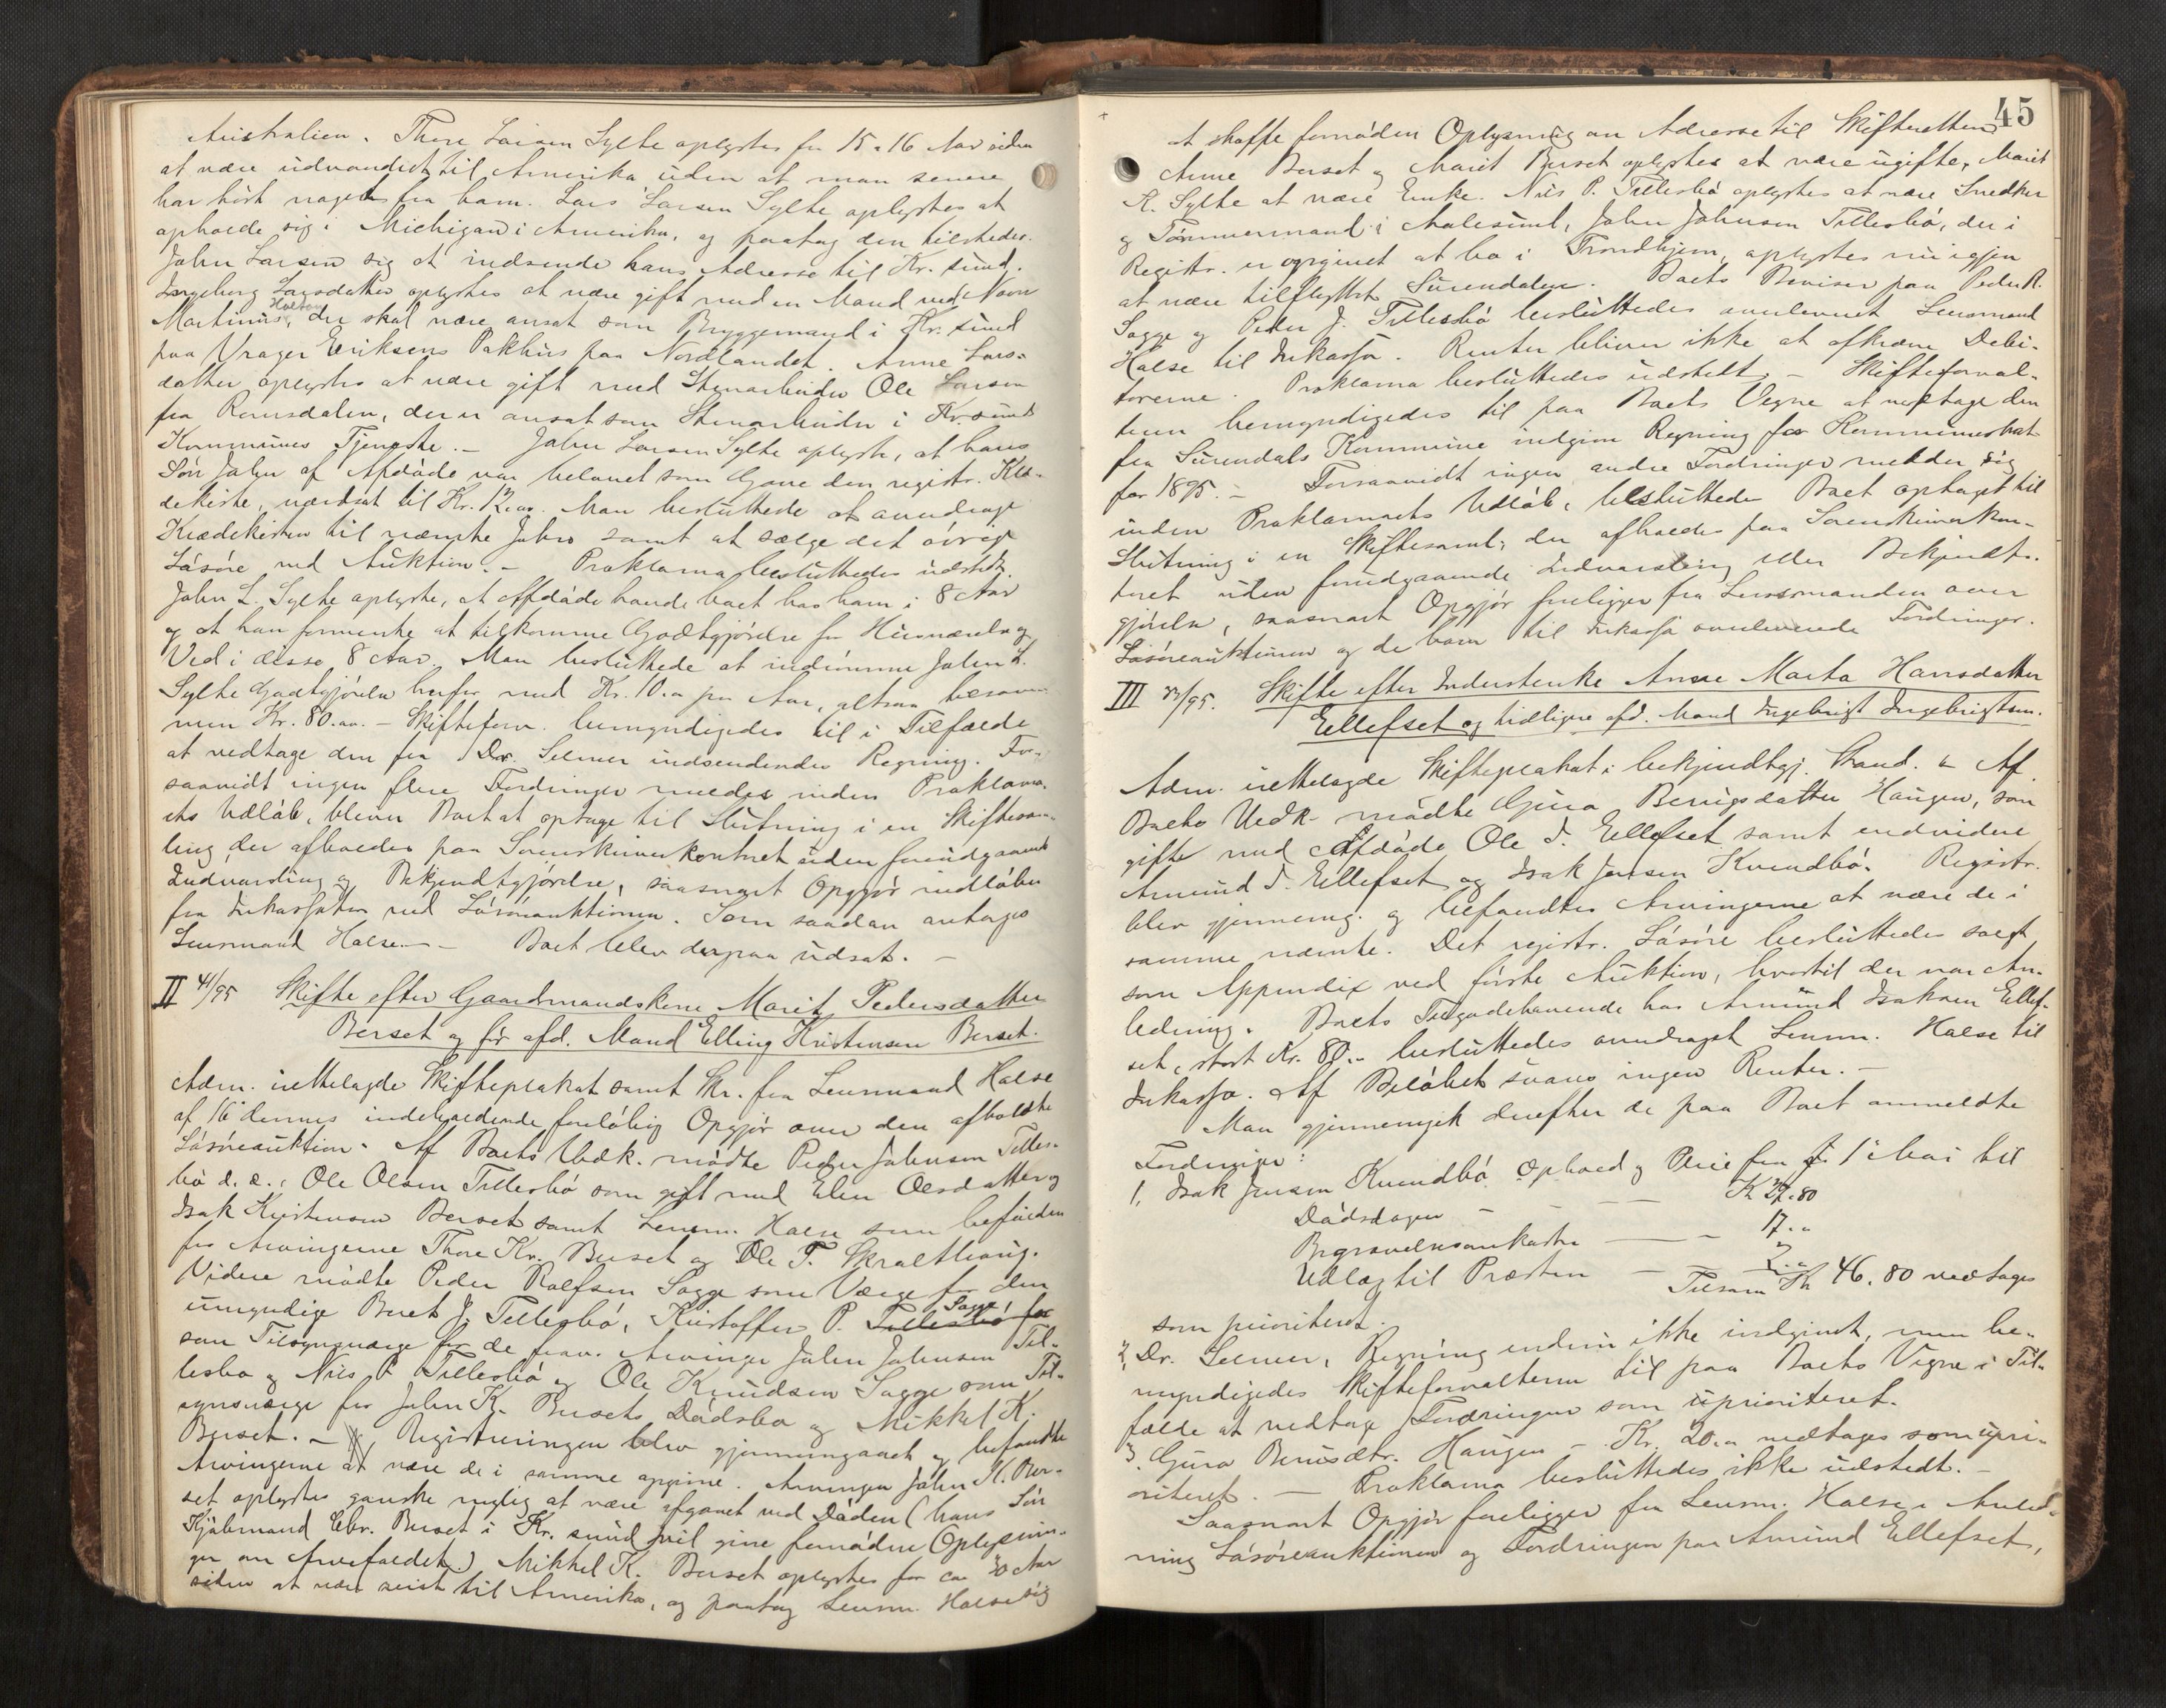 Australien. Thore Larsen Sylte oplystes for 15 a 16 Aar siden
at være udvandret til Amerika uden at man senere
har hørt noget fra ham. Lars Larsen Sylte oplystes at
opholde sig i Michigan i Amerika, og paatog den tilstedev.
John Larsen sig at indsende hans Adresse til Kr.sund.
Ingeborg Larsdatter oplystes at være gift med en Mand ved Navn
Martinus, der skal være ansat som Bryggemand i Kr.sund
paa Vrager Eriksens Pakhus paa Nordlandet. Anne Lars-
datter oplystes at være gift med Stenarbeider Ole Larsen
fra Romsdalen, der er ansat som Stenarbeider i Kr.sunds
Kommunes Tjeneste. – John Larsen Sylte oplyste, at hans
Søn John af Afdøde var belovet som Gave den registr. Klæ-
dekiste, værdsat til Kr. 12.00. Man besluttede at overdrage
Klædekisten til nævnte John samt at sælge det øvrige
Løsøre ved Auktion. – Proklama besluttedes udstedt.
John L. Sylte oplyste, at Afdøde havde boet hos ham i 8 Aar
og at han formente at tilkomme Godtgjørelse for Husværelse og
Ved i disse 8 Aar. Man besluttede at indrømme John L.
Sylte Godtgjørelse herfor med Kr. 10.00 pr. Aar, altsaa tilsam-
men Kr. 80.00. – Skifteforv. bemyndigedes til i Tilfælde
at vedtage den fra Dr. Selmer indsendendes Regning. For-
saavidt ingen flere Fordringer meldes inden Proklama-
ets Udløb, bliver Boet at optage til Slutning i en Skiftesam-
ling, der afholdes paa Sorenskriverkontoret uden forudgaaende
Indvarsling og Bekjendtgjørelse, saasnart Opgjør indløber
fra Inkassator ved Løsøreauktionen. Som saadan antages
Lensmand Halse. – Boet blev derpaa udsat. –
II 41/95 Skifte efter Gaardmandskone Marit Pedersdatter
Berset og før afd. Mand Elling Kristensen Berset.
Adm. irettelagde Skifteplakat samt Skr. fra Lensmand Halse
af 16 dennes indeholdende foreløbig Opgjør over den afholdte
Løsøreauktion. Af Boets Vedk. mødte Peder Johnsen Tilles-
bø d. æ., Ole Olsen Tillesbø som gift med Elen Olsdatter og
Isak Kristensen Berset samt Lensm. Halse som befuldm.
for Arvingerne Thore Kr. Berset og Ole T. Skralthaug.
Videre mødte Peder Rolfsen Sagge som Værge for den
umyndige Beret J. Tillesbø, Kristoffer P. Sagge
som Tilsynsværge for de frav. Arvinger John Johnsen Til-
lesbø og Nils P. Tillesbø og Ole Knudsen Sagge som Til-
synsværge for John K. Bersets Dødsbo og Mikkel K.
Berset. – Registreringen blev gjennemgaaet og befandtes
Arvingerne at være de i samme opgivne. Arvingen John K. Ber-
set oplystes ganske nylig at være afgaaet ved Døden (hans Søn
Kjøbmand Chr. Berset i Kr.sund vil give fornøden Oplysnin-
ger om Arvefaldet.) Mikkel K. Berset oplystes for ca 30 Aar
siden at være reist til Amerika, og paatog Lensm. Halse sig
45
at skaffe fornøden Oplysning om Adresse til Skifteretten
Anne Berset og Marit Berset oplystes at være ugifte, Marit
R. Sylte at være Enke. Nils P. Tillesbø oplystes at være Snedker
og Tømmermand i Aalesund, John Johnsen Tillesbø, der i
Registr. er opgivet at bo i Trondhjem, oplystes nu igjen
at være tilflyttet Surendalen. Boets Beviser paa Peder R.
Sagge og Peder J. Tillesbø besluttedes overleveret Lensmand
Halse til Inkasso. Renter bliver ikke at afkræve Debi-
torerne. Proklama besluttedes udstedt. – Skifteforval-
teren bemyndigedes til paa Boets Vegne at vedtage den
fra Surendals Kommune indgivne Regning for Kommuneskat
for 1895. – Forsaavidt ingen andre Fordringer melder sig
inden Proklamaets Udløb, besluttedes Boet optaget til
Slutning i en Skiftesaml., der afholdes paa Sorenskriverkon-
toret uden forudgaaende Indvarsling eller Bekjendt-
gjørelse, saasnart Opgjør foreligger fra Lensmanden over
Løsøreauktionen og de ham til Inkasso overleverede Fordringer.
III /95. Skifte efter Inderstenke Anne Marta Hansdatter
Ellefset og tidligere afd. Mand Ingebrigt Ingebrigtsen.
Adm. irettelagde Skifteplakat i bekjendtgj. Stand. – Af
Boets Vedk. mødte Guro Beruisdatter Haugen, som
gift med Afdøde Ole I. Ellefset samt endvidere
Amund I. Ellefset og Isak Jensen Kvendbø. Registr.
blev gjennemg. og befandtes Arvingerne at være de i
samme nævnte. Det registr. Løsøre besluttedes solgt
som Appendix ved første Auktion, hvortil der var An-
ledning. Boets Tilgodehavende hos Amund Isaksen Ellef-
set, stort Kr. 80.00 besluttedes overdraget Lensm. Halse til
Inkasso. Af Beløbet svares ingen Renter. –
Man gjennemgik derefter de paa Boet anmeldte
Fordringer:
1, Isak Jensen Kvendbø Ophold og Pleie fra 1 Mai til
Dødsdagen – – – Kr 27.80
Begravelsesomkostn. – – 17.00
Udlæg til Præsten – 2.00
Tilsam Kr 46.80 vedtages
som prioriteret.
2, Dr. Selmer, Regning endnu ikke indgivet, men be-
myndigedes Skifteforvalteren til paa Boets Vegne i Til-
fælde at vedtage Fordringen som uprioriteret.
3. Guro Beruisdtr. Haugen – Kr. 20.00 vedtages som upri-
oriteret. – Proklama besluttedes ikke udstedt. –
Saasnart Opgjør foreligger fra Lensm. Halse i Anled-
ning Løsøreauktionen og Fordringen paa Amund Ellefset,